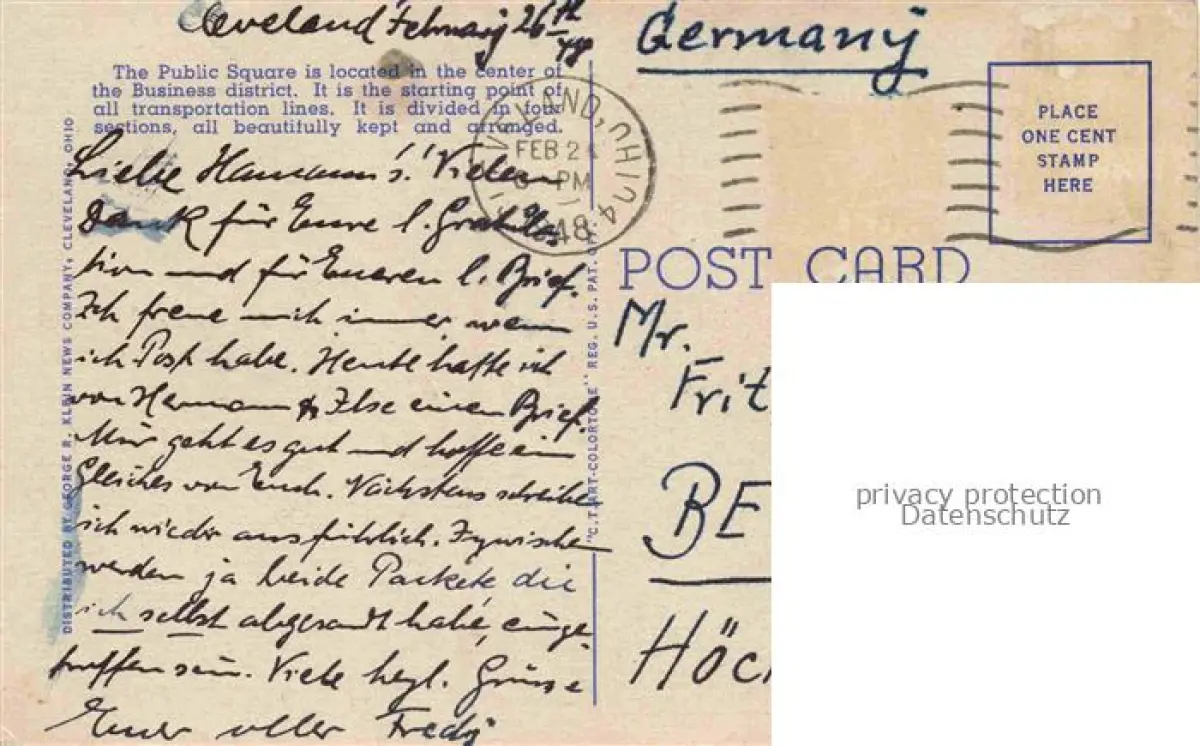 Cleveland February 26th 48
The Public Square is located in the center of
the Business district. It is the starting point of
all transportation lines. It is divided in four
sections, all beautifully kept and arranged.
Liebe Hamann's! Vielen
Dank für Eure l. Gratula
tion und für Eueren l. Brief.
Ich freue mich immer wenn
ich Post habe. Heute hatte ich
von Hermann & Ilse einen Brief.
Mir geht es gut und hoffe ein
Gleiches von Euch. Nächstens schreibe
ich wieder ausführlich. Inzwischen
werden ja beide Packete die
ich selbst abgesandt habe, einge-
troffen sein. Viele hzl. Grüsse
Euer aller Fredy
DISTRIBUTED BY GEORGE R. KLEIN NEWS COMPANY, CLEVELAND, OHIO
"C.T. ART-COLORTONE" REG. U.S. PAT. OFF.
Germany
OHIO 4
FEB 2
PM
48
PLACE
ONE CENT
STAMP
HERE
POST CARD
Mr.
Frit
BE
Höc
privacy protection
Datenschutz